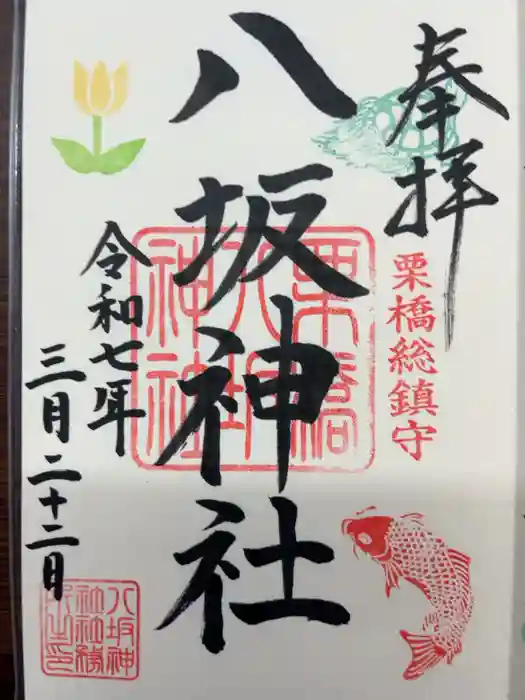 奉拝
栗橋総鎮守
八坂神社
栗橋八坂神社
令和七年
三月二十二日
八坂神社社務所之印